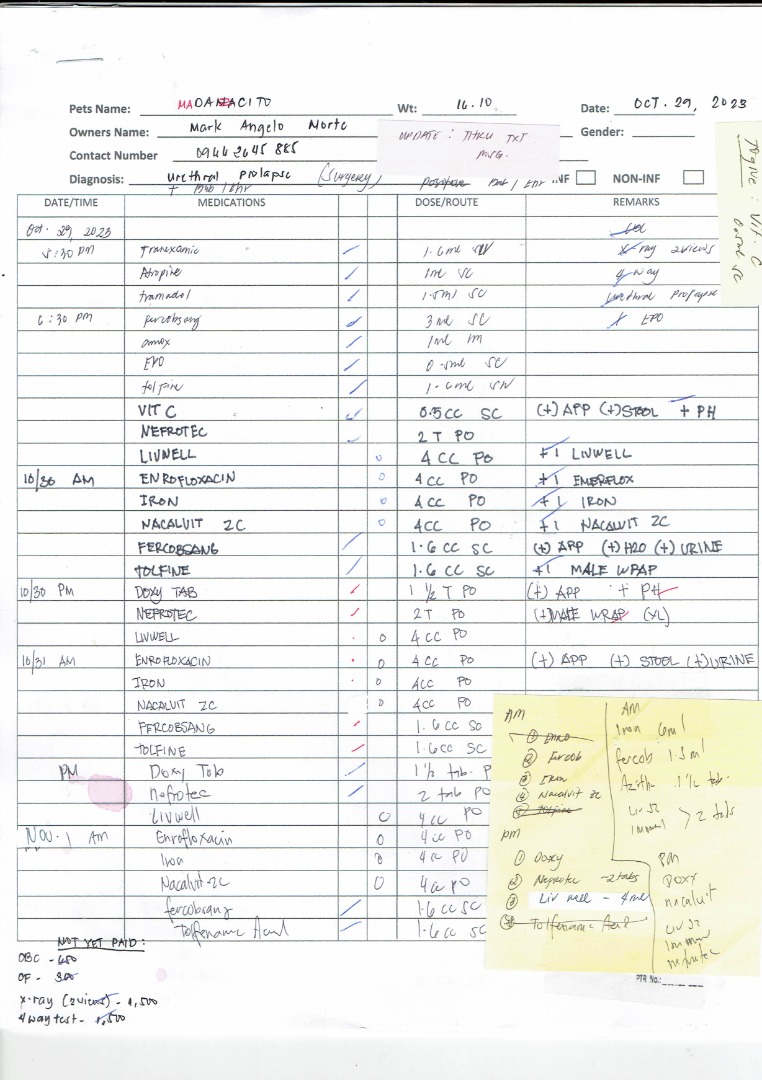 Pets Name: MADANACITO Wt: 16.10 Date: OCT. 29, 2023
Owners Name: Mark Angelo Norte Gender:
UPDATE: THRU TXT MSG.
Contact Number 0944 2645 885
Diagnosis: urethral prolapse (surgery) INF NON-INF
DATE/TIME MEDICATIONS DOSE/ROUTE REMARKS
Oct. 29, 2023 CBC
5:30 PM Tranexamic 1.6ml x-ray 2views
Atropine 1ml SC 4 way
tramadol 1.5ml SC urethral prolapse
6:30 PM fercobsang 3ml SC EPO
amox 1ml IM
EPO 0.5ml SC
tolfine 1.6ml
VIT C 0.5CC SC (+) APP (+) STOOL + PH
NEFROTEC 2 T PO
LIVWELL 4 CC PO +1 LIVWELL
10/30 AM ENROFLOXACIN 4 CC PO +1 ENERFLOX
IRON 4 CC PO +1 IRON
NACALVIT 2C 4CC PO +1 NACALVIT 2C
FERCOBSANG 1.6 CC SC (+) APP (+) H2O (+) URINE
TOLFINE 1.6 CC SC +1 MALE WRAP
10/30 PM DOXY TAB 1 1/2 T PO (+) APP + PH
NEFROTEC 2T PO (+) MALE WRAP (XL)
LIVWELL 4 CC PO
10/31 AM ENROFLOXACIN 4 CC PO (+) APP (+) STOOL (+) URINE
IRON 4CC PO
NACALVIT 2C 4CC PO
FERCOBSANG 1.6 CC SC
TOLFINE 1.6CC SC
PM Doxy Tab 1 1/2 tab. P
Nefrotec 2 tab PO
Livwell 4 cc PO
Nov. 1 AM Enrofloxacin 4 cc PO
Iron 4 cc PO
Nacalvit-2C 4 cc PO
fercobsang 1.6 cc SC
Tolfenamic Acid 1.6 cc SC
To give: Vit. C
SC
AM
① Enro
② Fercob
③ Iron
④ Nacalvit 2c
⑤ Tolfine
pm
① Doxy
② Neprotec - 2 tabs
③ Liv well - 4ml
④ Tolfenamic Acid
AM
Iron 6ml
fercob 1.5ml
Azith. 1 1/2 tab.
Liv 52
Immuno > 2 tabs
PM
Doxy
nacalvit
Liv 52
nefrotec
PTR NO.:
NOT YET PAID:
CBC - 650
OF - 300
x-ray (2views) - 1,500
4 way test - 1,500